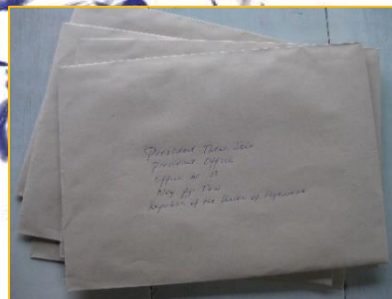 President Thein Sein
President Office
Office no
Nay Pyi Taw
Republic of the Union of Myanmar